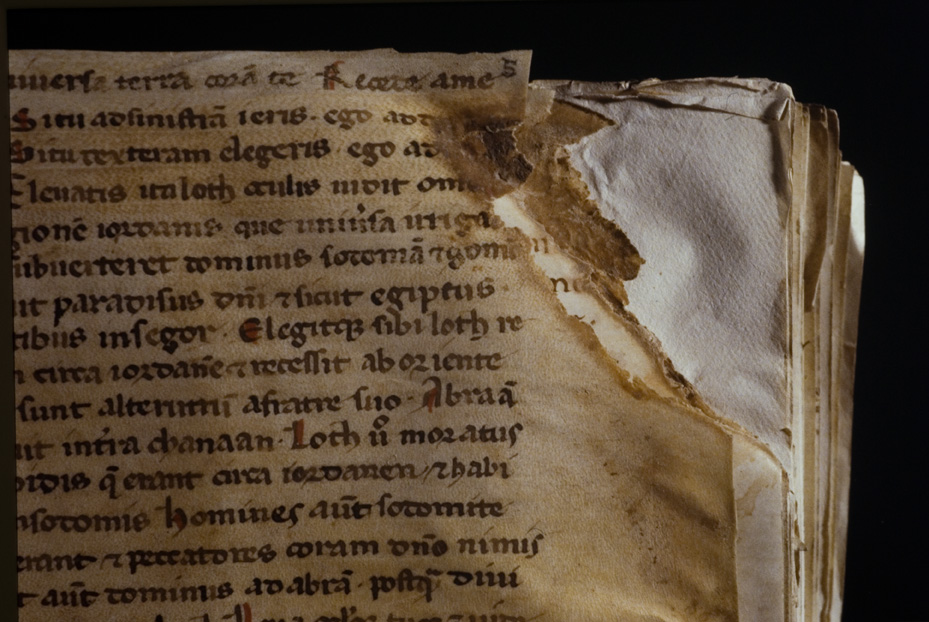 uniuersa terra corā te Recede a me 5
Si tu ad sinistrā ieris ego ad d
Si tu dexteram elegeris ego ad
Eleuatis ita loth oculis uidit om
gionē iordanis que uniūsa irriga
subuerteret dominus sodomā ⁊ gom
ut paradisus dn̄i ⁊ sicut egiptus
tibus in segor Elegitqꝫ sibi loth re
n circa iordanē ⁊ recessit ab oriente
sunt alterutrū a fratre suo Abraā
uit in t̄ra chanaan Loth ů moratus
pidis q̄ erant circa iordanen ⁊ habi
n sodomis homines aūt sodomite
erant ⁊ peccatores coram dn̄o nimis
t aūt dominus ad abrā postqͣ diui